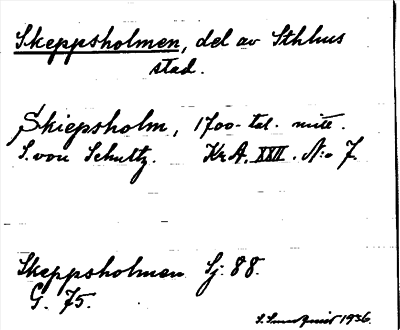 Skeppsholmen, del av Sthlms
stad.
Skiepsholm, 1700-tal. mitt.
S. von Schultz. Kr.A. XXII. N:o 7.
Skeppsholmen Sj. 88.
G. 75.
1936.